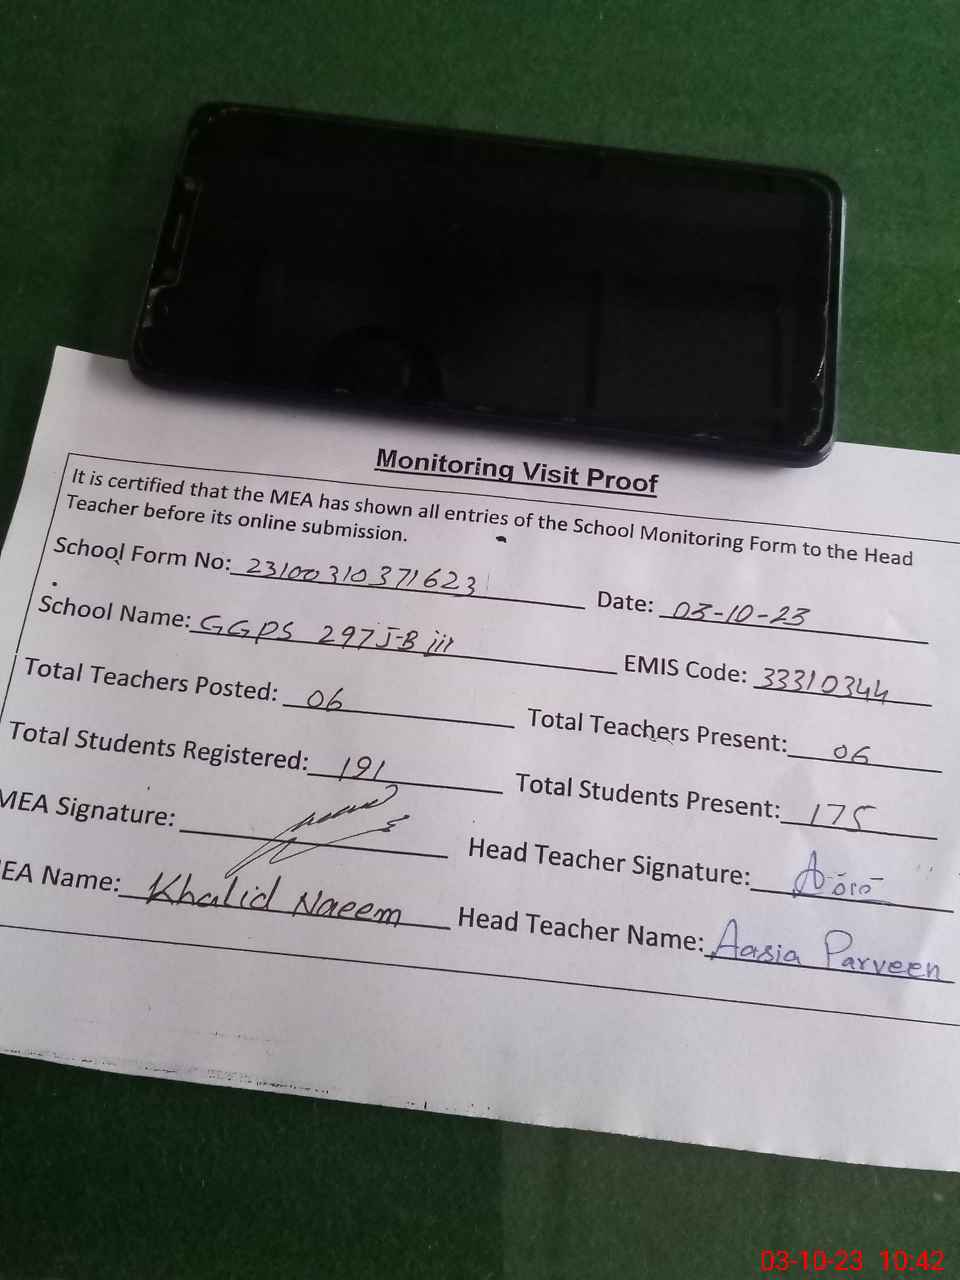 Monitoring Visit Proof
It is certified that the MEA has shown all entries of the School Monitoring Form to the Head
Teacher before its online submission.
School Form No: 23100310371623 Date: 03-10-23
School Name: GGPS 297 J-B iii EMIS Code: 33310344
Total Teachers Posted: 06 Total Teachers Present: 06
Total Students Registered: 191 Total Students Present: 175
MEA Signature: Head Teacher Signature:
EA Name: Khalid Naeem Head Teacher Name: Aasia Parveen
03-10-23 10:42